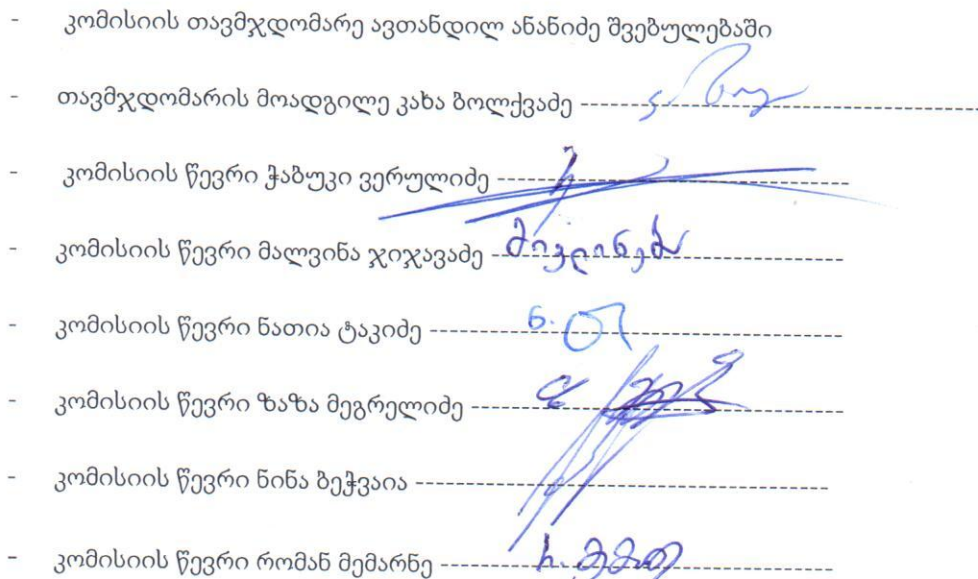 - კომისიის თავმჯდომარე ავთანდილ ანანიძე შვებულებაში
- თავმჯდომარის მოადგილე კახა ბოლქვაძე
- კომისიის წევრი ჭაბუკი ვერულიძე
- კომისიის წევრი მალვინა ჯიჯავაძე მივლინება
- კომისიის წევრი ნათია ტაკიძე ნ.
- კომისიის წევრი ზაზა მეგრელიძე
- კომისიის წევრი ნინა ბეჭვაია
- კომისიის წევრი რომან მემარნე